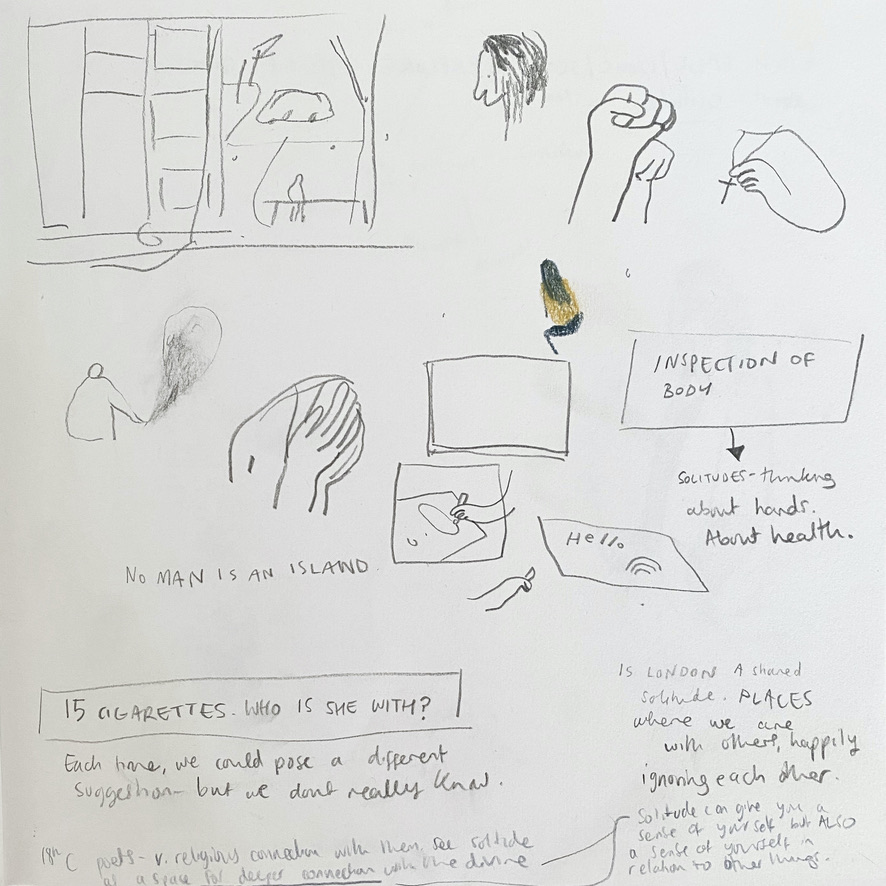 INSPECTION OF
BODY
SOLITUDES - thinking
about hands.
About health.
Hello
NO MAN IS AN ISLAND.
15 CIGARETTES. WHO IS SHE WITH?
Each time, we could pose a different
suggestion - but we dont really know.
IS LONDON A shared
solitude. PLACES
where we are
with others, happily
ignoring each other.
Solitude can give you a
sense of yourself but ALSO
a sense of yourself in
relation to other things.
18th C poets - v. religious connection with them, see solitude
as a space for deeper connection with the divine